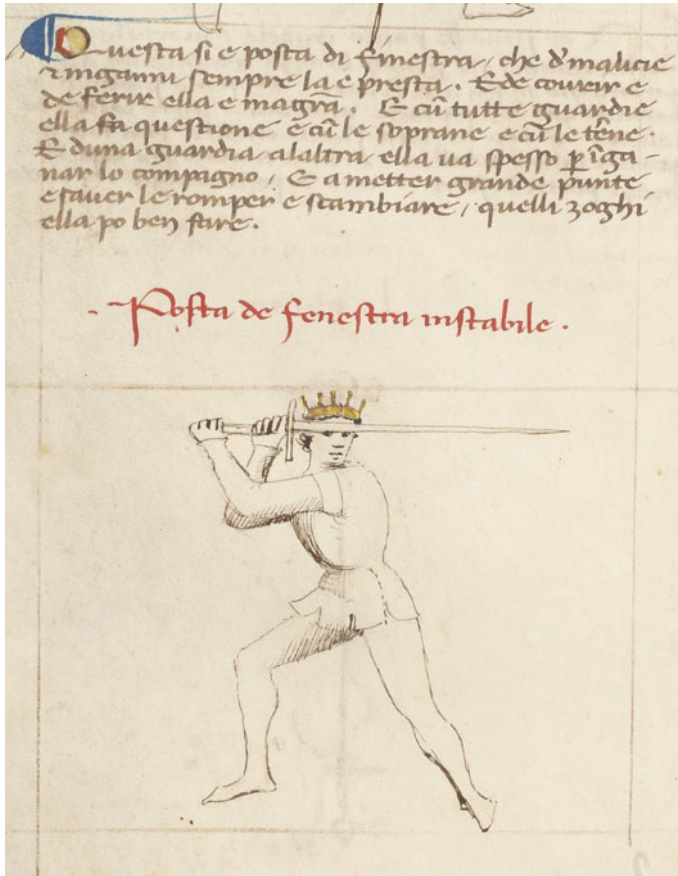 Questa si e posta di finestra / che d' malicie
⁊ inganni sempre la e presta . E de covrir e
de ferir ella e magra . E cū tutte guardie
ella fa questione e cū le soprane e cū le t'ene .
E duna guardia a laltra ella va spesso p īga-
nar lo compagno / E a metter grande punte
e saver le romper e scambiare / quelli zoghi
ella po ben fare .
. Posta de fenestra instabile .